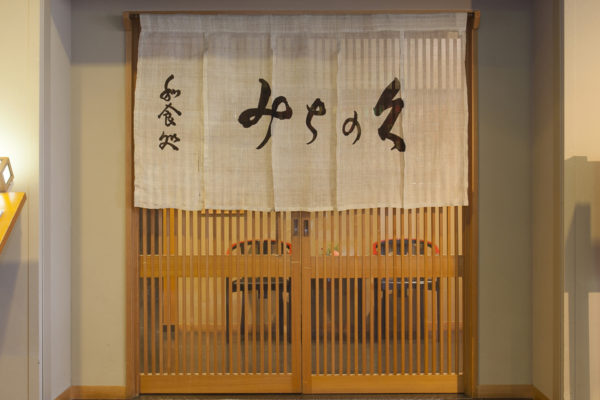 みちの久
和食処